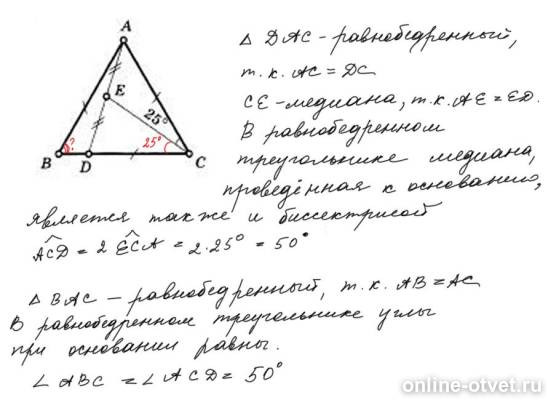 A
E
25°
B
?
D
25°
C
△ DAC - равнобедренный,
т.к. AC = DC
CE - медиана, т.к. AE = ED.
В равнобедренном
треугольнике медиана,
проведённая к основанию,
является также и биссектрисой
ACD = 2 ECA = 2·25° = 50°
△ BAC - равнобедренный, т.к. AB = AC
В равнобедренном треугольнике углы
при основании равны.
∠ ABC = ∠ ACD = 50°
online-otvet.ru